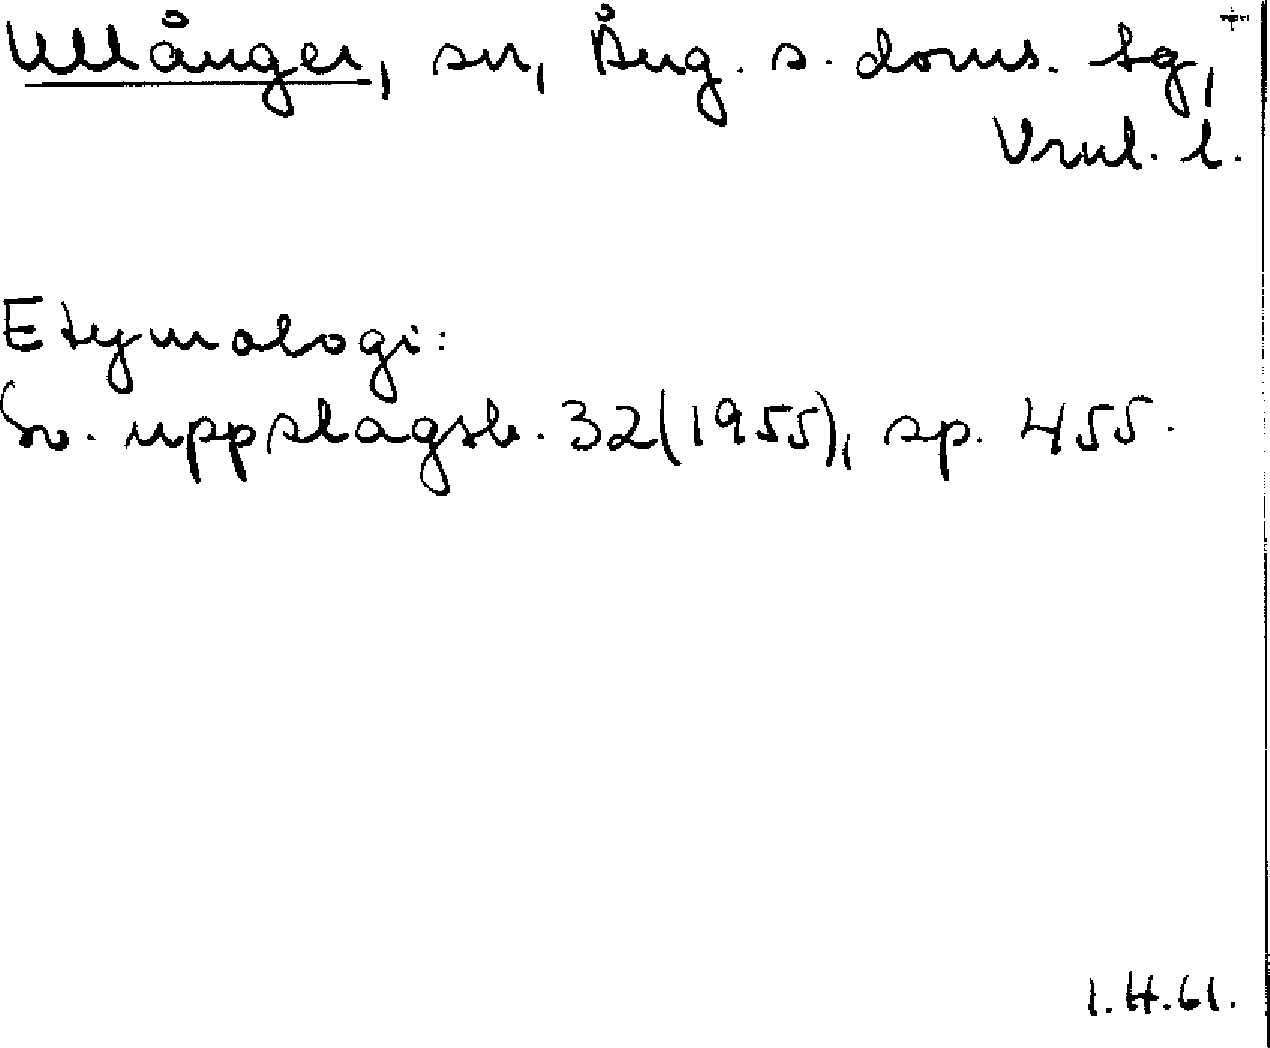 Ullånger, sn, Ång. s. doms. tg,
Vrnl. l.
Etymologi:
Sv. uppslagsb. 32(1955), sp. 455.
I.H.61.